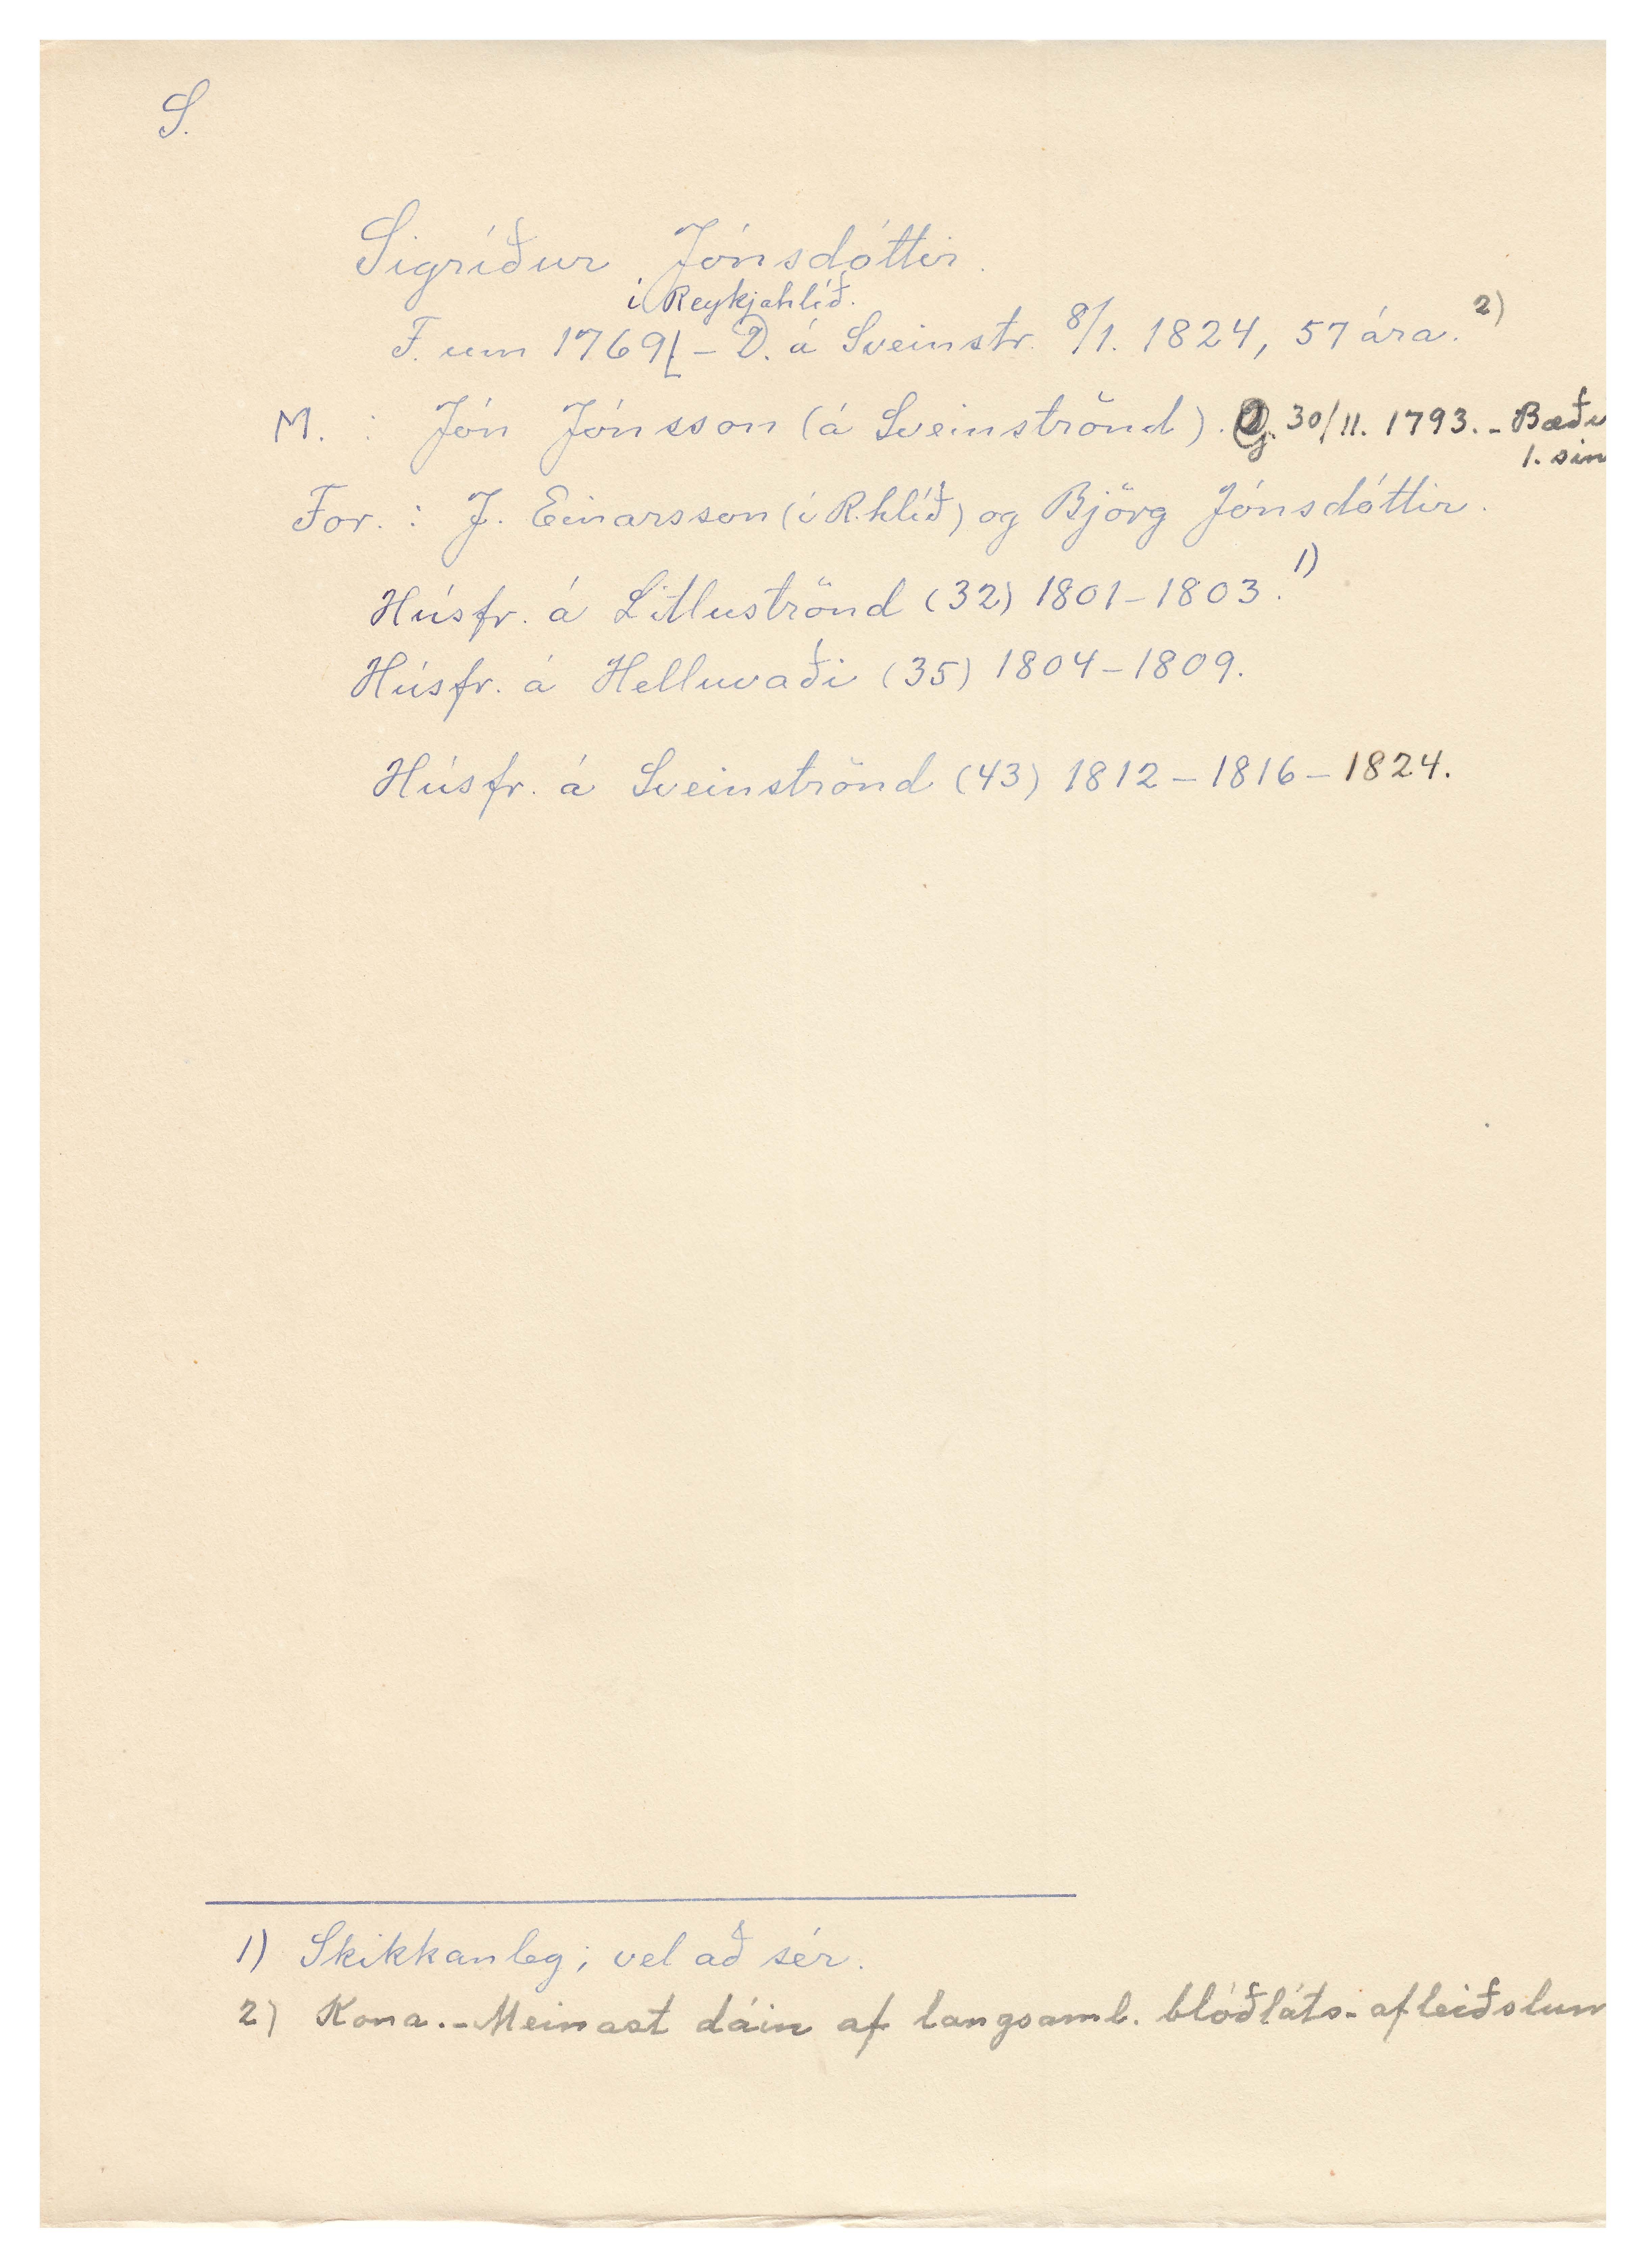 S.
Sigríður Jónsdóttir.
í Reykjahlíð.
F. um 1769[ – D. á Sveinstr. 8/1. 1824, 57 ára. 2)
M. : Jón Jónsson (á Sveinströnd). G. 30/11. 1793. – Bæði
1. sin
For. : J. Einarsson (í R.hlíð) og Björg Jónsdóttir.
Húsfr. á Litluströnd (32) 1801–1803. 1)
Húsfr. á Helluvaði (35) 1804–1809.
Húsfr. á Sveinströnd (43) 1812–1816–1824.
1) Skikkanleg; vel að sér.
2) Kona. – Meinast dáin af langsaml. blóðláts-afleiðslum